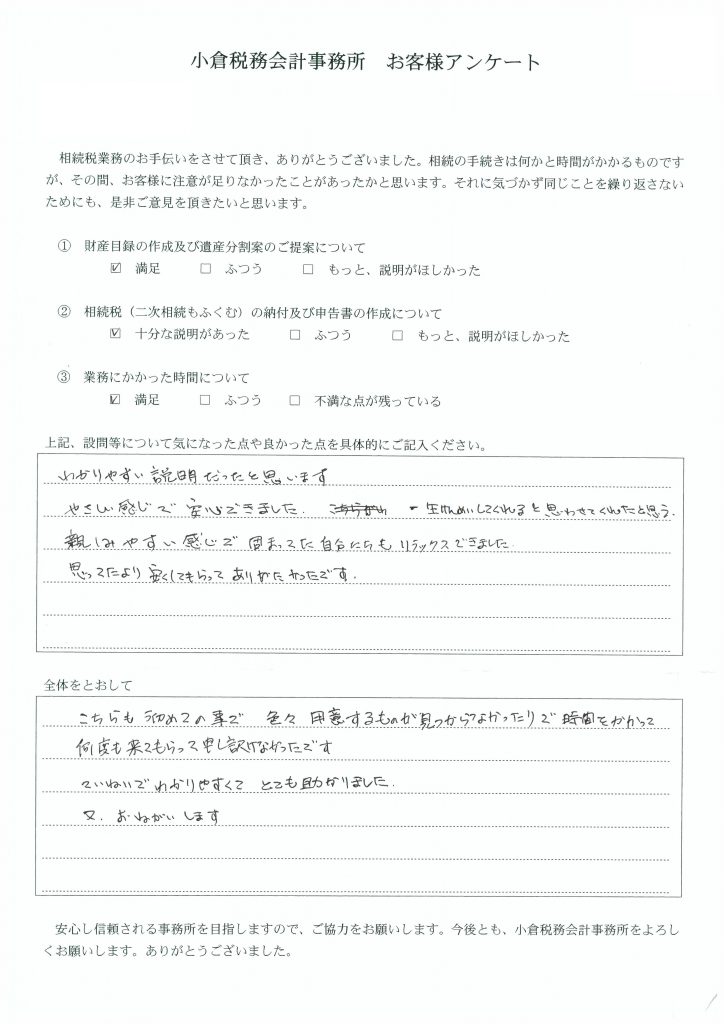 小倉税務会計事務所　お客様アンケート
相続税業務のお手伝いをさせて頂き、ありがとうございました。相続の手続きは何かと時間がかかるものです
が、その間、お客様に注意が足りなかったことがあったかと思います。それに気づかず同じことを繰り返さない
ためにも、是非ご意見を頂きたいと思います。
① 財産目録の作成及び遺産分割案のご提案について
☑ 満足 □ ふつう □ もっと、説明がほしかった
② 相続税（二次相続もふくむ）の納付及び申告書の作成について
☑ 十分な説明があった □ ふつう □ もっと、説明がほしかった
③ 業務にかかった時間について
☑ 満足 □ ふつう □ 不満な点が残っている
上記、設問等について気になった点や良かった点を具体的にご記入ください。
わかりやすい説明だったと思います
やさしい感じで安心できました. 一生けんめいしてくれると思わせてくれたと思う.
親しみやすい感じで固まってた自分たちもリラックスできました
思ってたより安くしてもらってありがたかったです.
全体をとおして
こちらも初めての事で 色々 用意するものが見つからなかったりで時間をかかって
何度も来てもらって申し訳けなかったです
ていねいでわかりやすくて とても助かりました.
又. おねがいします
安心し信頼される事務所を目指しますので、ご協力をお願いします。今後とも、小倉税務会計事務所をよろし
くお願いします。ありがとうございました。